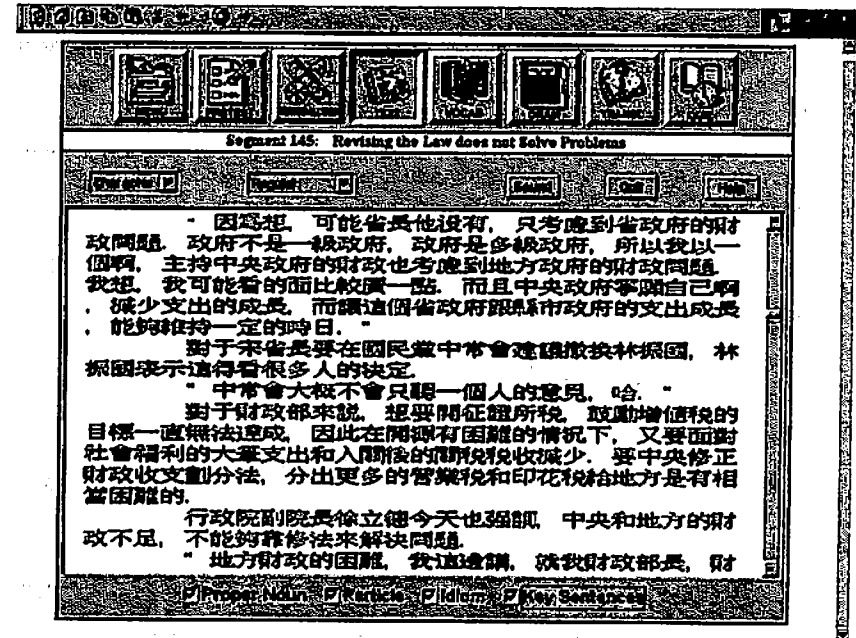 TEXT
VOCAB
Segment 145: Revising the Law does not Solve Problems
Character
Request
Sound
Quit
Help
" 因為想, 可能省長他没有, 只考慮到省政府的財
政問題. 政府不是一級政府, 政府是多級政府, 所以我以一
個啊, 主持中央政府的財政也考慮到地方政府的財政問題.
我想, 我可能看的面比較廣一點. 而且中央政府寧願自己啊
, 減少支出的成長, 而讓這個省政府跟縣市政府的支出成長
, 能夠維持一定的時日. "
對于宋省長要在國民黨中常會建議撤換林振國, 林
振國表示這得看很多人的決定.
" 中常會大概不會只聽一個人的意見, 哈. "
對于財政部來説, 想要開征證所税, 鼓動增值税的
目標一直無法達成, 因此在開源有困難的情况下, 又要面對
社會福利的大筆支出和入關後的關税税收減少. 要中央修正
財政收支劃分法, 分出更多的營業税和印花税給地方是有相
當困難的.
行政院副院長徐立德今天也强調, 中央和地方的財
政不足, 不能夠靠修法來解決問題.
" 地方財政的困難, 我這邊講, 就我財政部長, 財
Proper Noun
Particle
Idiom
Key Sentences